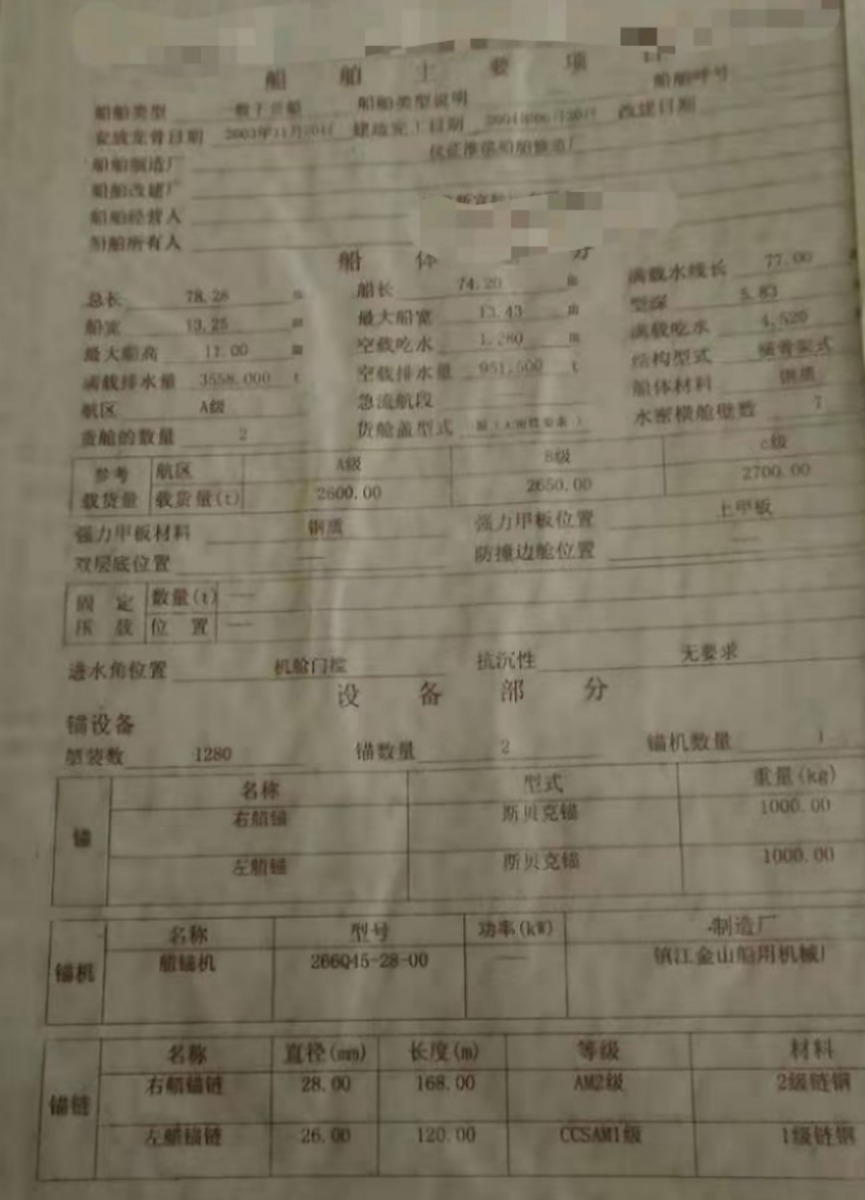 船舶主要项
船舶呼号
船舶类型 一般干货船 船舶类型说明
安放龙骨日期 2003年11月 建造完工日期 改建日期
船舶制造厂
船舶改建厂
船舶经营人
船舶所有人
船体 分
总长 78.26 m 船长 74.20 m 满载水线长 77.00
船宽 13.25 m 最大船宽 13.43 m 型深 5.83
最大船高 11.00 m 空载吃水 1.280 m 满载吃水 4.520
满载排水量 3558.000 t 空载排水量 951.500 t 结构型式 横骨架式
航区 A级 急流航段 船体材料 钢质
货舱的数量 2 货舱盖型式 水密横舱壁数 7
参考载货量 航区 A级 B级 C级
载货量(t) 2600.00 2650.00 2700.00
强力甲板材料 钢质 强力甲板位置 上甲板
双层底位置 — 防撞边舱位置 —
固定压载 数量(t) —
位置 —
进水角位置 机舱门槛 抗沉性 无要求
设备部分
锚设备
舾装数 1280 锚数量 2 锚机数量 1
锚 名称 型式 重量(kg)
右艏锚 斯贝克锚 1000.00
左艏锚 斯贝克锚 1000.00
锚机 名称 型号 功率(kW) 制造厂
艏锚机 266Q45-28-00 — 镇江金山船用机械厂
锚链 名称 直径(mm) 长度(m) 等级 材料
右艏锚链 28.00 168.00 AM2级 2级链钢
左艏锚链 26.00 120.00 CCSAM1级 1级链钢